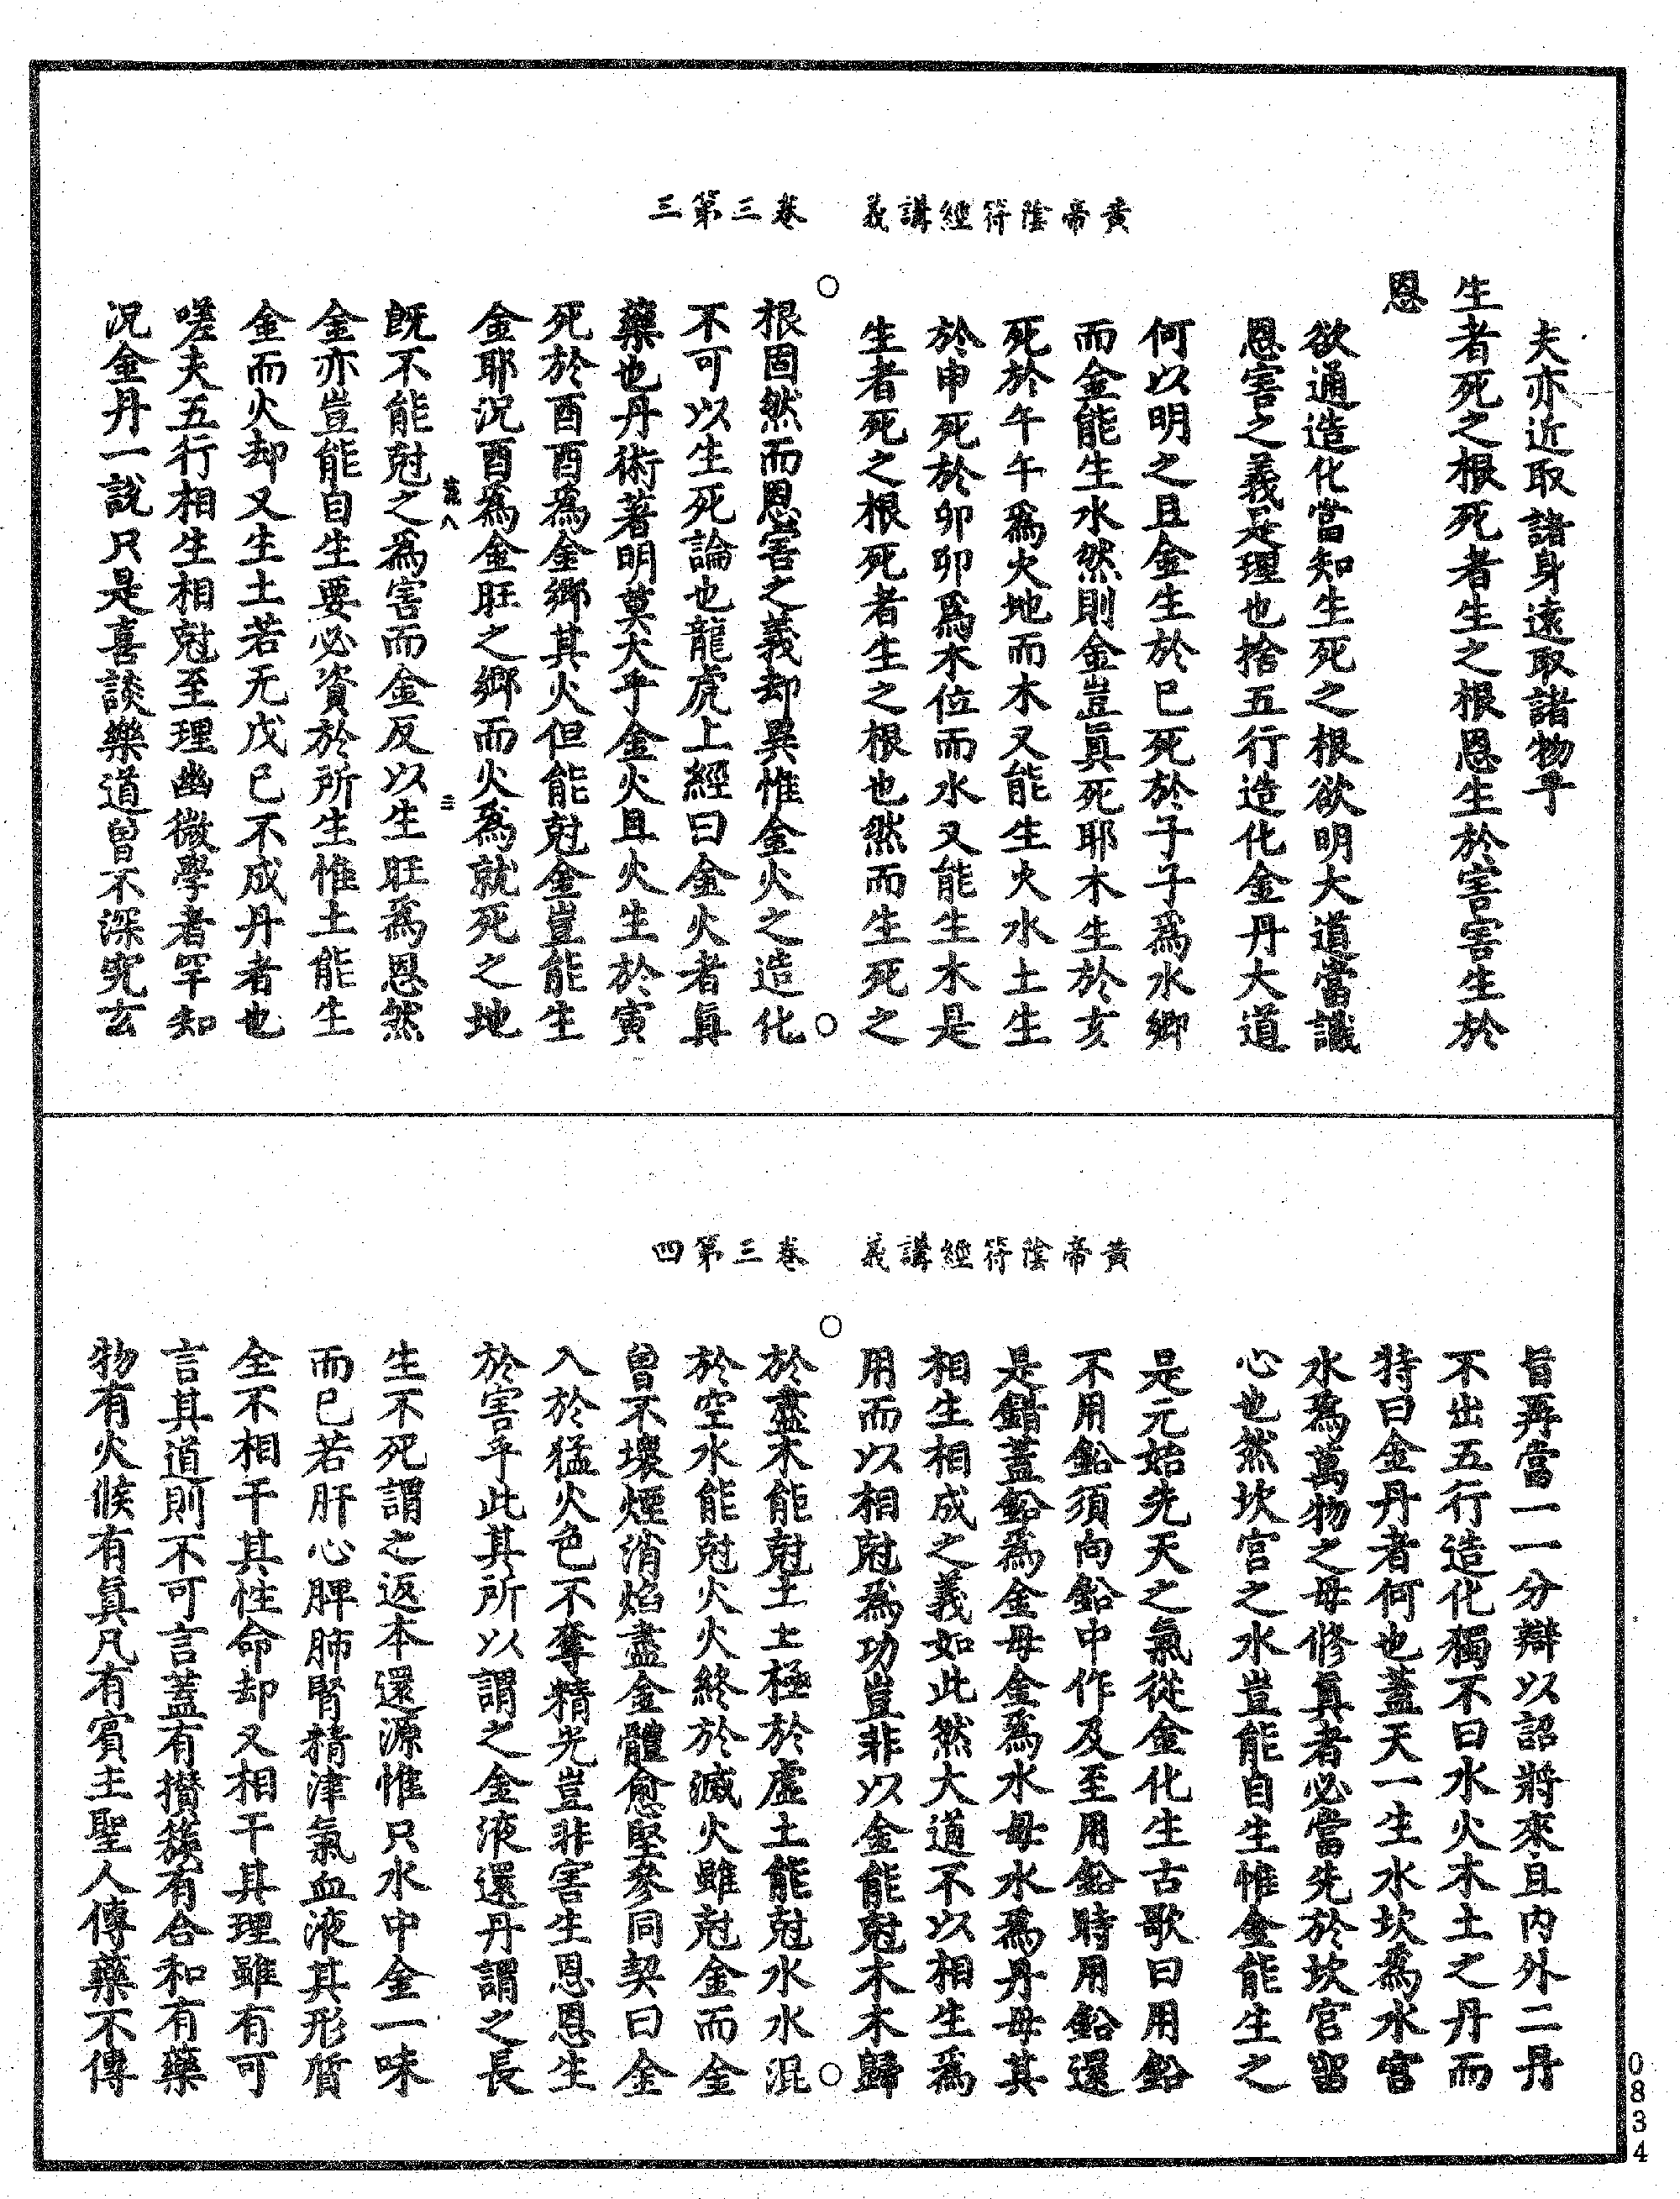 黃帝陰符經講義　卷三第三
夫亦近取諸身遠取諸物乎
生者死之根死者生之根恩生於害害生於
恩
欲通造化當知生死之根欲明大道當識
恩害之義是理也捨五行造化金丹大道
何以明之且金生於巳死於子子爲水鄉
而金能生水然則金豈眞死耶木生於亥
死於午午爲火地而木又能生火水土生
於申死於卯卯爲木位而水又能生木是
生者死之根死者生之根也然而生死之
根固然而恩害之義却異惟金火之造化
不可以生死論也龍虎上經曰金火者眞
藥也丹術著明莫大乎金火且火生於寅
死於酉酉爲金鄉其火但能尅金豈能生
金耶況酉爲金旺之鄉而火爲就死之地
既不能尅之爲害而金反以生旺爲恩然
金亦豈能自生要必資於所生惟土能生
金而火却又生土若无戊己不成丹者也
嗟夫五行相生相尅至理幽微學者罕知
況金丹一說只是喜談樂道曾不深究玄
黃帝陰符經講義　卷三第四
旨再當一一分辯以詔將來且内外二丹
不出五行造化獨不曰水火木土之丹而
特曰金丹者何也蓋天一生水坎爲水宮
水爲萬物之母修眞者必當先於坎宮留
心也然坎宮之水豈能自生惟金能生之
是元始先天之氣從金化生古歌曰用鉛
不用鉛須向鉛中作及至用鉛時用鉛還
是錯蓋鉛爲金母金爲水母水爲丹母其
相生相成之義如此然大道不以相生爲
用而以相尅爲功豈非以金能尅木木歸
於盡木能尅土土極於虛土能尅水水混
於空水能尅火火終於滅火雖尅金而金
曾不壞煙消焰盡金體愈堅參同契曰金
入於猛火色不奪精光豈非害生恩恩生
於害乎此其所以謂之金液還丹謂之長
生不死謂之返本還源惟只水中金一味
而已若肝心脾肺腎精津氣血液其形質
全不相干其性命却又相干其理雖有可
言其道則不可言蓋有攢簇有合和有藥
物有火候有眞凡有賓主聖人傳藥不傳
0834